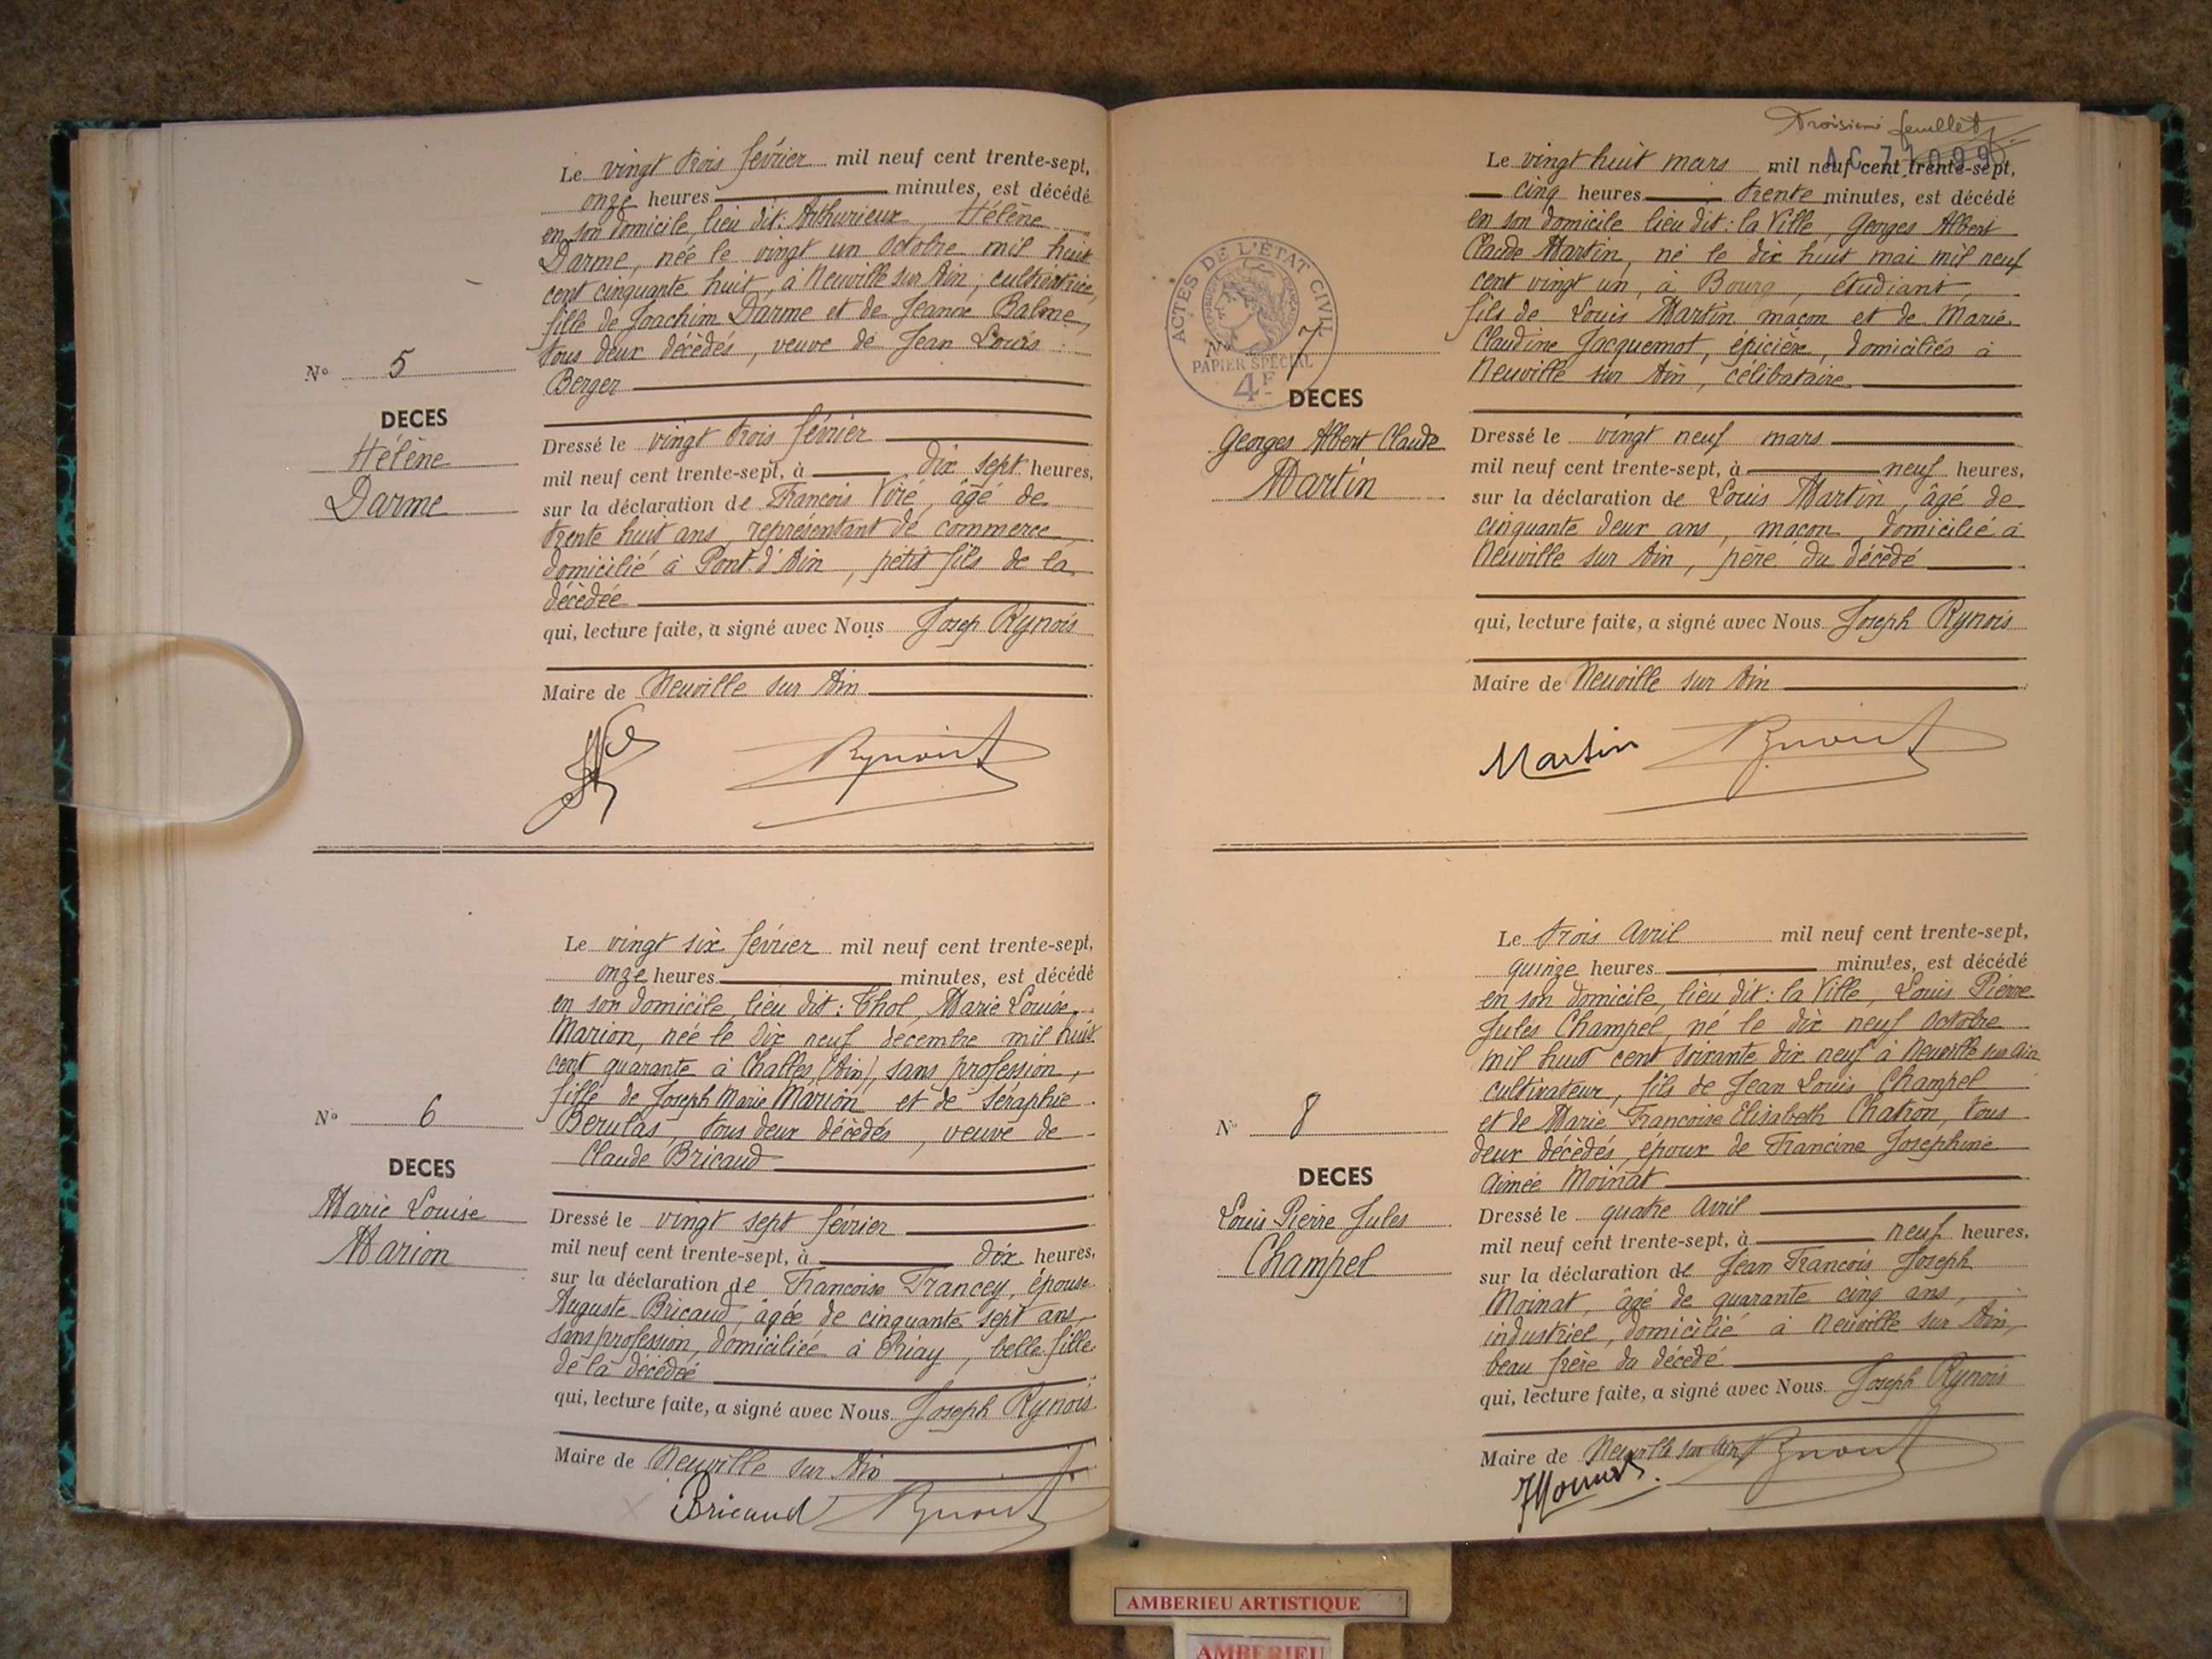 Le vingt trois février mil neuf cent trente-sept,
onze heures minutes, est décédé
en son domicile, lieu dit: Arthurieux, Hélène
Darme, née le vingt un octobre mil huit
cent cinquante huit, à Neuville sur Ain, cultivatrice,
fille de Joachim Darme et de Jeanne Balme,
tous deux décédés, veuve de Jean Louis
Berger
N° 5
DECES
Hélène
Darme
Dressé le vingt trois février
mil neuf cent trente-sept, à dix sept heures,
sur la déclaration de François Viré, âgé de
trente huit ans, représentant de commerce,
domicilié à Pont d'Ain, petit fils de la
décédée
qui, lecture faite, a signé avec Nous Josep Rynois
Maire de Neuville sur Ain
Rynois
Le vingt six février mil neuf cent trente-sept,
onze heures minutes, est décédé
en son domicile, lieu dit: Thol, Marie Louise
Marion, née le dix neuf décembre mil huit
cent quarante à Challes (Ain), sans profession,
fille de Joseph Marie Marion et de Séraphie
Berulas, tous deux décédés, veuve de
Claude Bricaud
N° 6
DECES
Marie Louise
Marion
Dressé le vingt sept février
mil neuf cent trente-sept, à dix heures,
sur la déclaration de Françoise Francey, épouse
Auguste Bricaud, âgée de cinquante sept ans,
sans profession, domiciliée à Priay, belle fille
de la décédée
qui, lecture faite, a signé avec Nous Joseph Rynois
Maire de Neuville sur Ain
Bricaud Rynois
Troisième feuillet
AC 71099
Le vingt huit mars mil neuf cent trente-sept,
cinq heures trente minutes, est décédé
en son domicile lieu dit: la Ville, Georges Albert
Claude Martin, né le dix huit mai mil neuf
cent vingt un, à Bourg, étudiant,
fils de Louis Martin maçon et de Marie
Claudine Jacquemot, épicière, domiciliés à
Neuville sur Ain, célibataire
ACTES DE L'ÉTAT CIVIL
PAPIER SPÉCIAL
4F
N° 7
DECES
Georges Albert Claude
Martin
Dressé le vingt neuf mars
mil neuf cent trente-sept, à neuf heures,
sur la déclaration de Louis Martin, âgé de
cinquante deux ans, maçon, domicilié à
Neuville sur Ain, père du décédé
qui, lecture faite, a signé avec Nous Joseph Rynois
Maire de Neuville sur Ain
Martin Rynois
Le trois Avril mil neuf cent trente-sept,
quinze heures minutes, est décédé
en son domicile, lieu dit: la Ville, Louis Pierre
Jules Champel, né le dix neuf Octobre
mil huit cent soixante dix neuf à Neuville sur Ain
cultivateur, fils de Jean Louis Champel
et de Marie Françoise Elisabeth Chatron, tous
deux décédés, époux de Francine Joséphine
Aimée Moinat
N° 8
DECES
Louis Pierre Jules
Champel
Dressé le quatre Avril
mil neuf cent trente-sept, à neuf heures,
sur la déclaration de Jean François Joseph
Moinat, âgé de quarante cinq ans,
industriel, domicilié à Neuville sur Ain,
beau frère du décédé
qui, lecture faite, a signé avec Nous Joseph Rynois
Maire de Neuville sur Ain Rynois
JMoinat
AMBERIEU ARTISTIQUE
AMBERIEU